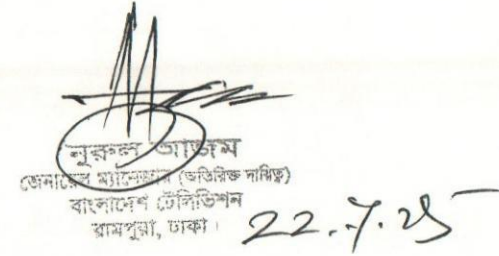 নুরুল আজম
জেনারেল ম্যানেজার (অতিরিক্ত দায়িত্ব)
বাংলাদেশ টেলিভিশন
রামপুরা, ঢাকা।
22.7.25